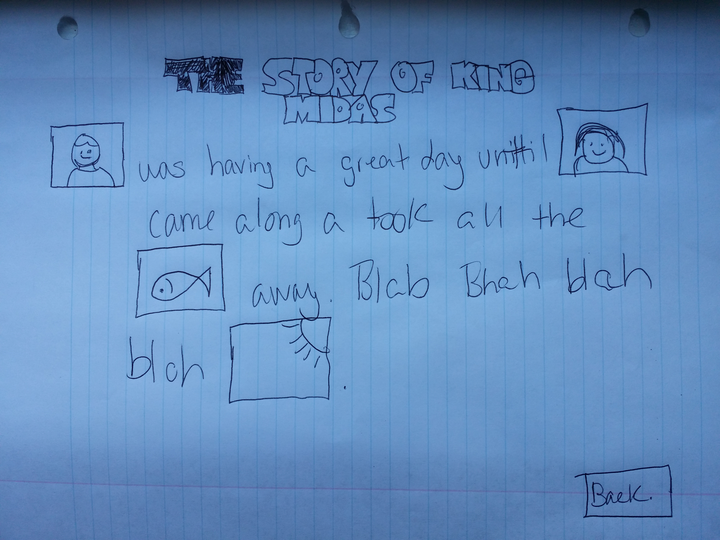 THE STORY OF KING
MIDAS
was having a great day untill
came along a took all the
away. Blab Bhah blah
blah .
Back.